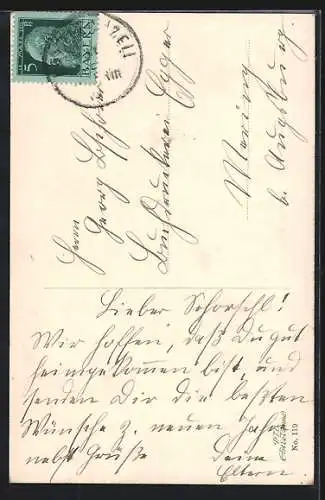 5
BAYERN
Herrn
Georg
Buchdruckerei
Mering
b. Augsburg.
Lieber Schorschl!
Wir hoffen, daß Du gut
heimgekommen bist und
senden Dir die beßten
Wünsche z. neuen Jahre
nebst Grüße deine
Eltern.
No. 119